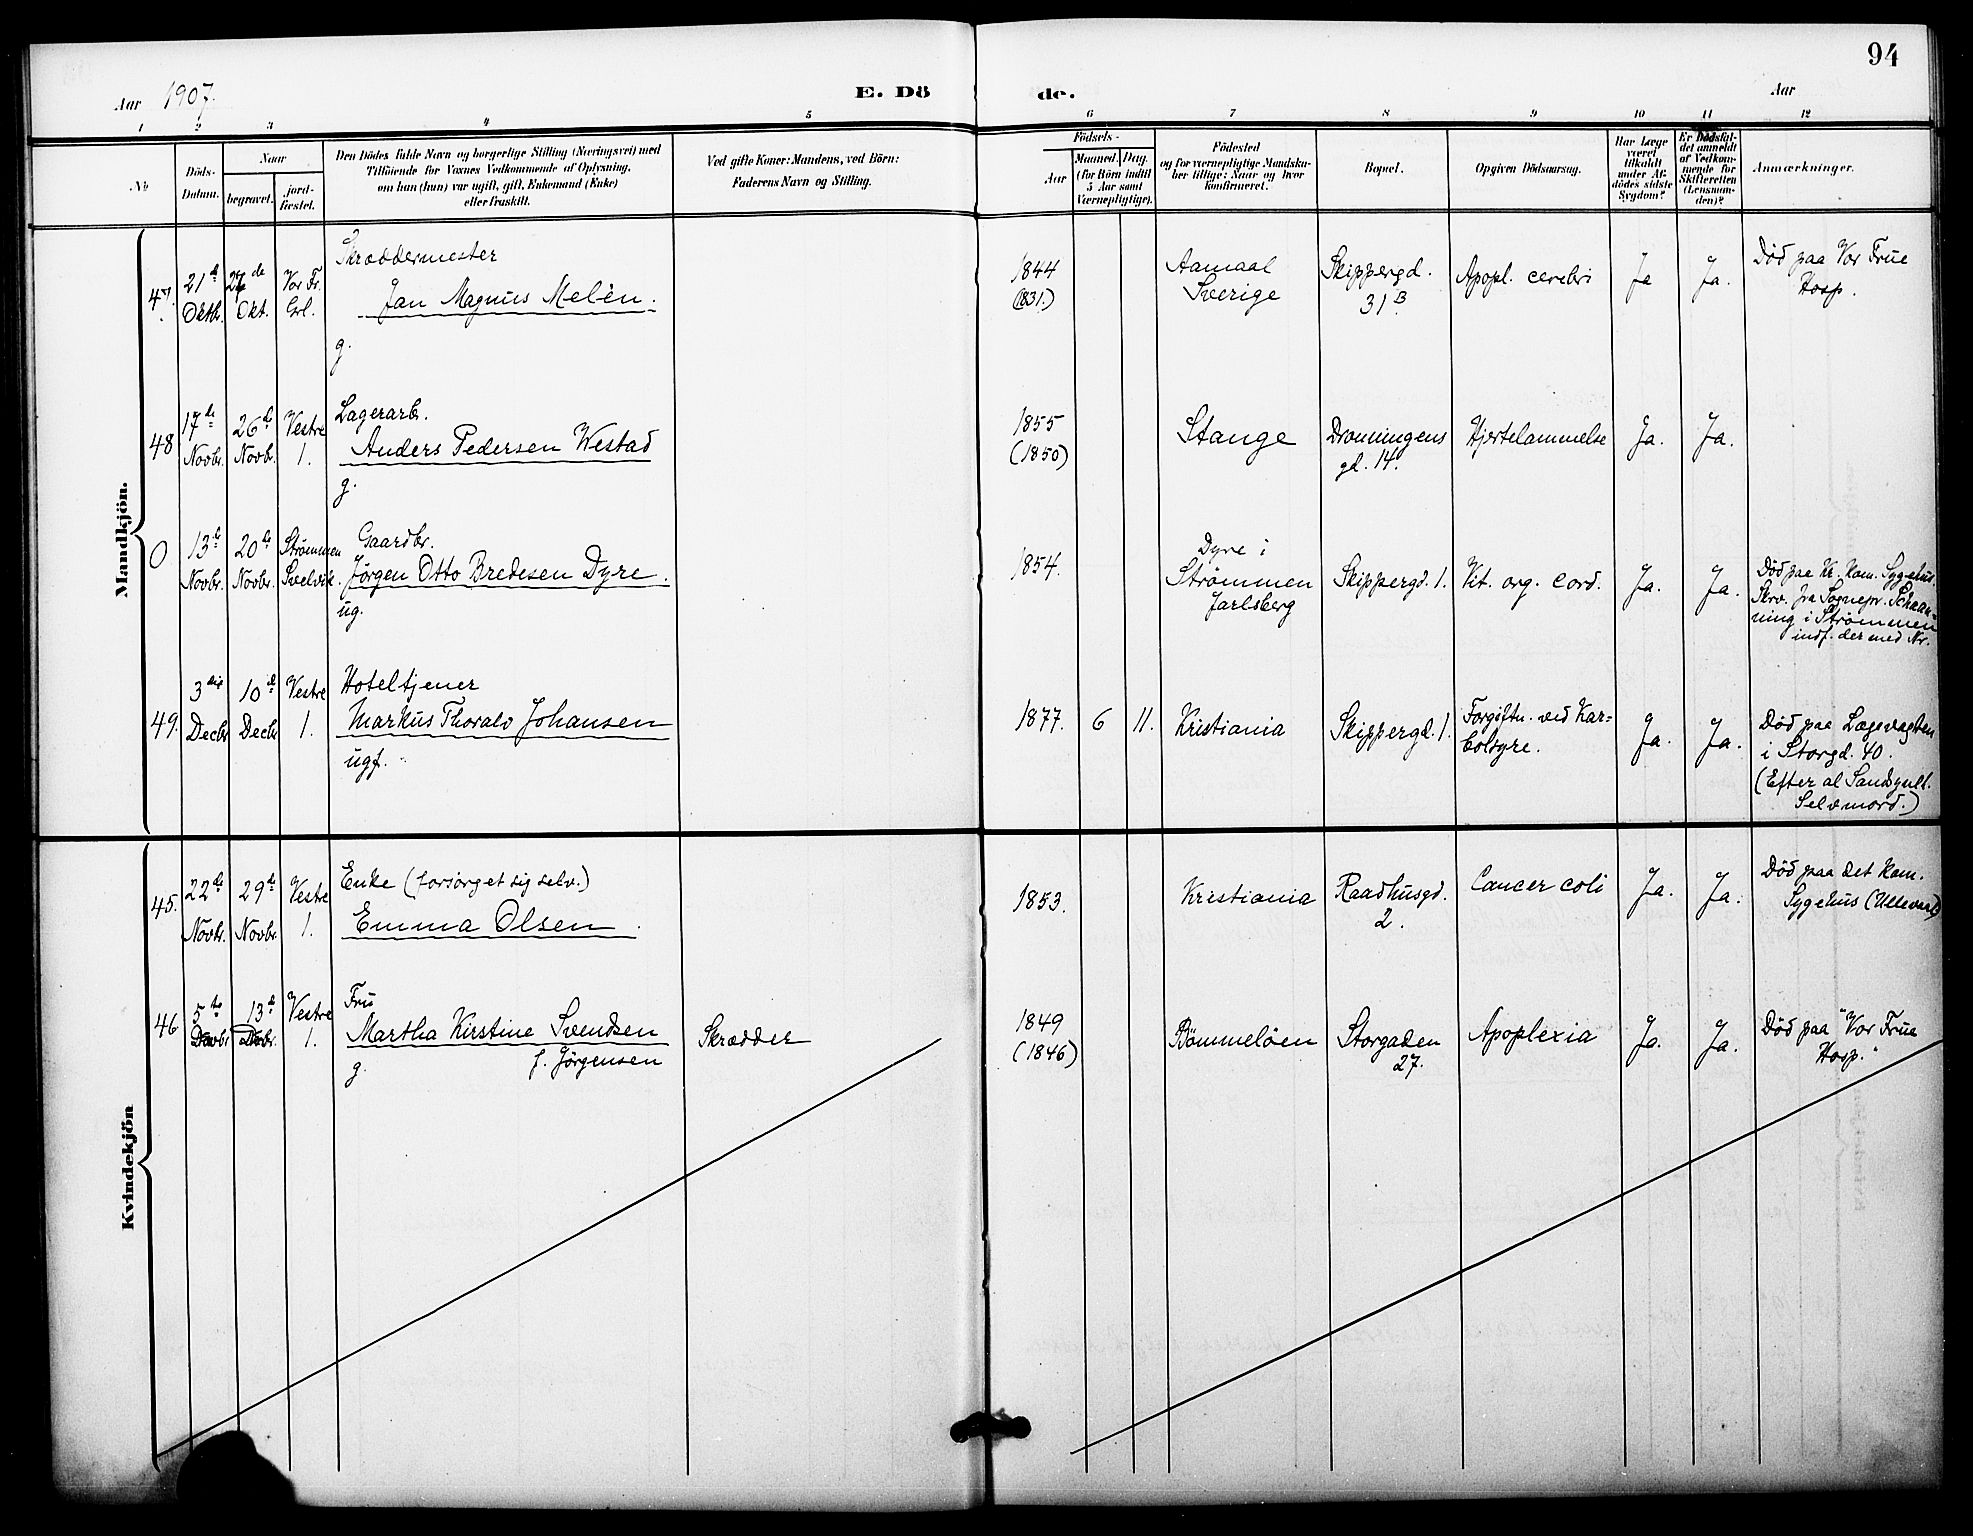 94
Aar 1907.
E. Dö
de.
Aar
1 2 3 4 5 6 7 8 9 10 11 12
No
Döds-
Datum.
Naar
begravet.
jord-
fæstet.
Den Dödes fulde Navn og borgerlige Stilling (Næringsvei) med
Tilföiende for Voxnes Vedkommende af Oplysning,
om han (hun) var ugift, gift, Enkemand (Enke)
eller fraskilt.
Ved gifte Koner: Mandens, ved Börn:
Faderens Navn og Stilling.
Födsels-
Aar
Maaned. Dag.
(for Börn indtil
5 Aar samt
Værnepligtige).
Födested
og for værnepligtige Mandska-
ber tillige: Naar og hvor
konfirmeret.
Bopæl.
Opgiven Dödsaarsag.
Har Læge
været
tilkaldt
under Af-
dödes sidste
Sygdom?
Er Dödsfal-
det anmeldt
af Vedkom-
mende for
Skifteretten
(Lensman-
den)?
Anmærkninger.
Mandkjön.
47.
21 d
Oktbr.
de
Okt.
Vor Fr.
Grl.
Skræddermester
Jan Magnus Melèn.
g.
1844
(1831.)
Aamaal
Sverige
Skippergd.
31 B
Apopl. cerebri
Ja
Ja.
Död paa Vor Frue
Hosp.
48
17 de
Novbr.
26 d
Novbr.
Vestre
1.
Lagerarb.
Anders Pedersen Westad
g.
1855
(1850)
Stange
Dronningens
gd. 14.
Hjertelammelse
Ja.
Ja.
0
13 d
Novbr.
20 d
Novbr.
Strømmen
Svelvik.
Gaardbr.
Jørgen Otto Bredesen Dyre.
ug.
1854.
Dyre i
Strømmen
Jarlsberg
Skippergd. 1.
Vit. org. cord.
Ja.
Ja.
Död paa Kr. Kom. Sygehus.
Skrv. fra Sognepr. Schaan-
ning i Strømmen
indf. der med Nr.
49.
3 die
Decbr
10 d
Decbr
Vestre
1.
Hoteltjener
Markus Thoralv Johansen
ugf.
1877.
6
11.
Kristiania
Skippergd. 1.
Forgiftn. ved Kar-
bolsyre.
Ja.
Ja.
Död paa Lægevagten
i Storgd. 40.
(Efter al Sandsynl.
Selvmord.)
Kvindekjön
45.
22 de
Novbr.
29 d
Novbr.
Vestre
1.
Enke (forsörget sig selv.)
Emma Olsen.
1853.
Kristiania
Raadhusgd.
2.
Cancer coli
Ja.
Ja.
Död paa det kom.
Sygehus (Ullevaal)
46
5 te
13 d
Vestre
1.
Fru
Martha Kirstine Svendsen
f. Jörgensen
g.
Skrædder
1849
(1846)
Bömmelöen
Storgaden
27.
Apoplexia
Ja.
Ja.
Död paa "Vor Frue
Hosp."